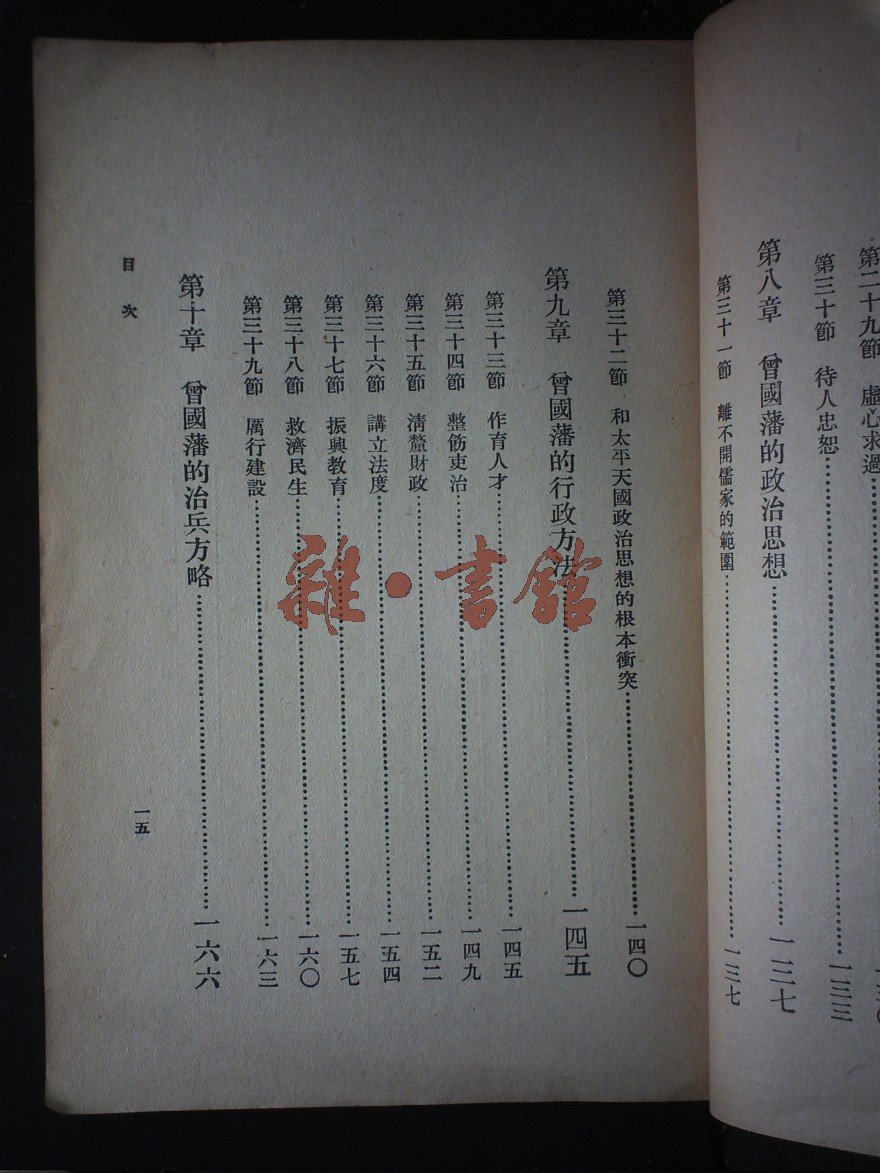 第二十九節　虛心求過
第三十節　待人忠恕……一三三
第八章　曾國藩的政治思想……一三七
第三十一節　離不開儒家的範圍……一三七
第三十二節　和太平天國政治思想的根本衝突……一四〇
第九章　曾國藩的行政方法……一四五
第三十三節　作育人才……一四五
第三十四節　整飭吏治……一四九
第三十五節　清釐財政……一五二
第三十六節　講立法度……一五四
第三十七節　振興教育……一五七
第三十八節　救濟民生……一六〇
第三十九節　厲行建設……一六三
第十章　曾國藩的治兵方略……一六六
目次
一五
雜·書館